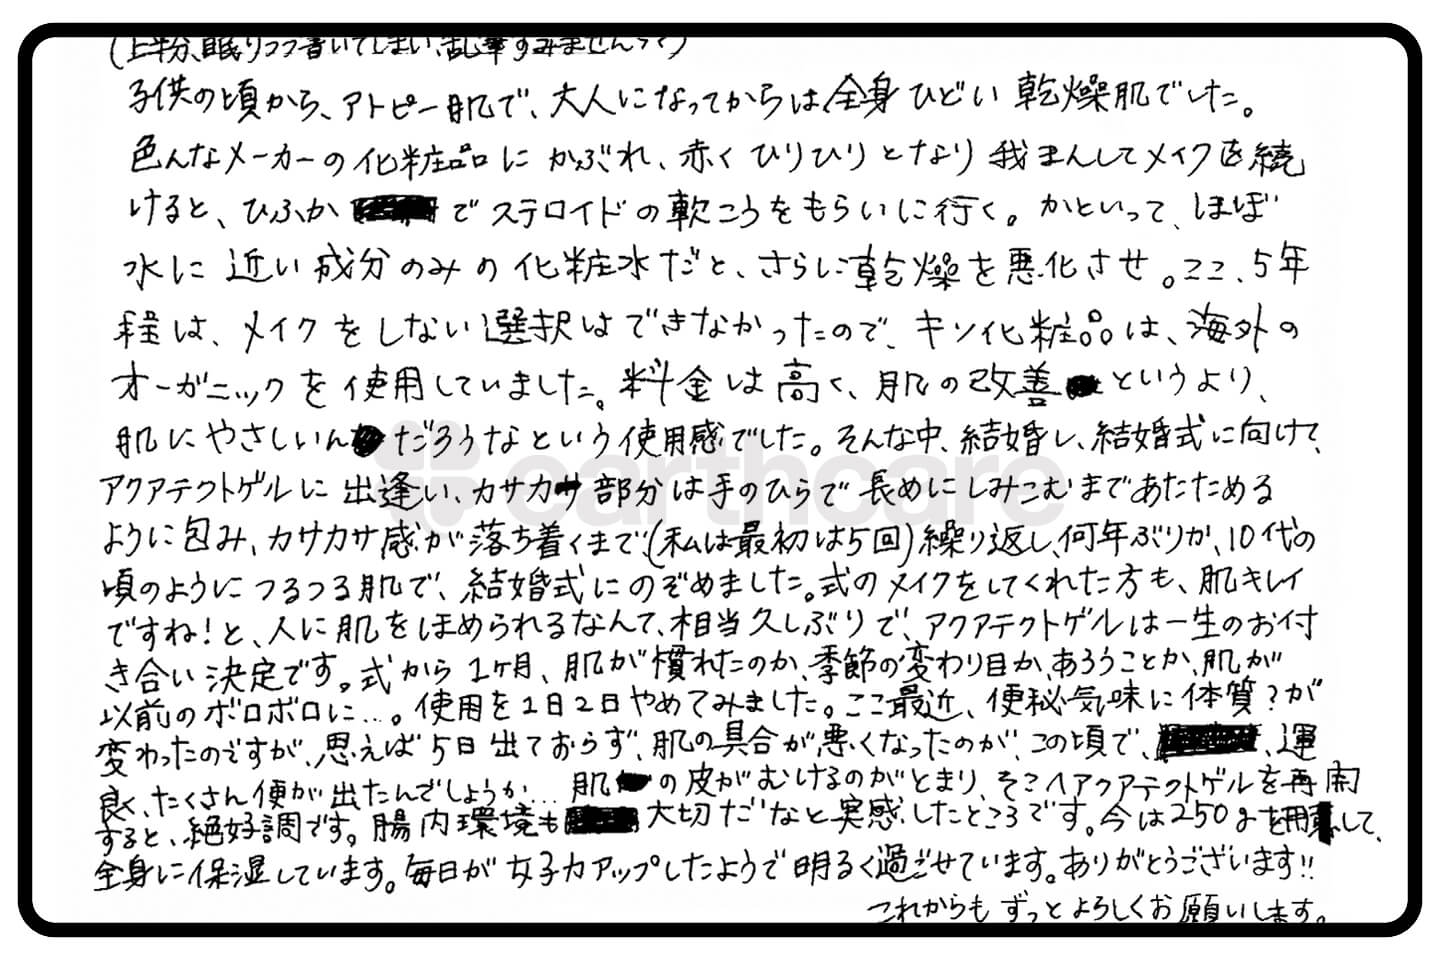 (上半分、眠りつつ書いてしまい、乱筆すみません
子供の頃から、アトピー肌で、大人になってからは全身ひどい乾燥肌でした。
色んなメーカーの化粧品にかぶれ、赤くひりひりとなり我まんしてメイクを続
けると、ひふかでステロイドの軟こうをもらいに行く。かといって、ほぼ
水に近い成分のみの化粧水だと、さらに乾燥を悪化させ。ここ、5年
程は、メイクをしない選択はできなかったので、キソ化粧品は、海外の
オーガニックを使用していました。料金は高く、肌の改善というより、
肌にやさしいんだろうなという使用感でした。そんな中、結婚し、結婚式に向けて、
アクアテクトゲルに出逢い、カサカサ部分は手のひらで長めにしみこむまであたためる
ように包み、カサカサ感が落ち着くまで、(私は最初は5回)繰り返し、何年ぶりか、10代の
頃のようにつるつる肌で、結婚式にのぞめました。式のメイクをしてくれた方も、肌キレイ
ですね!と、人に肌をほめられるなんて、相当久しぶりで、アクアテクトゲルは一生のお付
き合い決定です。式から1ヶ月、肌が慣れたのか、季節の変わり目か、あろうことか、肌が
以前のボロボロに…。使用を1日2日やめてみました。ここ最近、便秘気味に体質?が
変わったのですが、思えば5日出ておらず、肌の具合が悪くなったのが、この頃で、、運
良く、たくさん便が出たんでしょうか… 肌の皮がむけるのがとまり、そこへアクアテクトゲルを再開
すると、絶好調です。腸内環境も大切だなと実感したところです。今は250gを用意して、
全身に保湿しています。毎日が女子力アップしたようで明るく過ごせています。ありがとうございます!!
これからもずっとよろしくお願いします。
earthcare